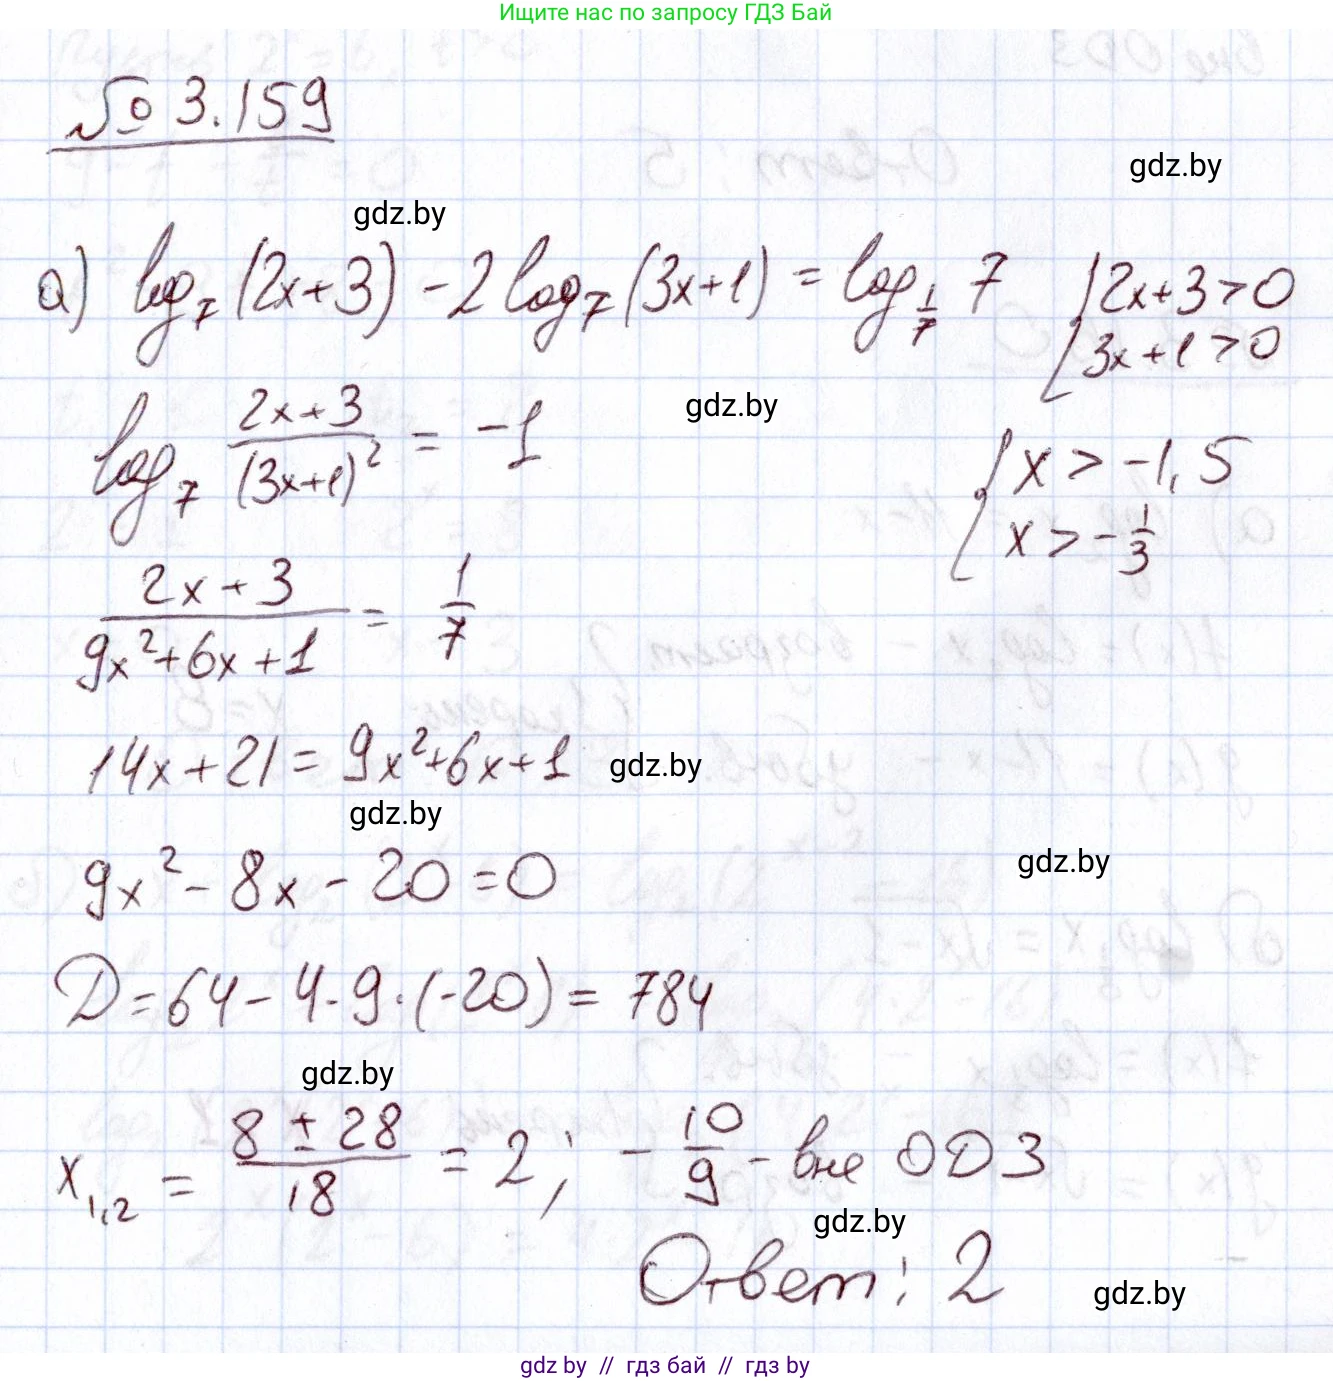 Ищите нас по запросу ГДЗ Бай
№ 3.159
gdz.by
gdz.by
а) log₇(2x+3) - 2log₇(3x+1) = log_{1/7} 7 { 2x+3>0
3x+1>0
gdz.by
log₇ (2x+3)/(3x+1)² = -1 { x > -1,5
x > -1/3
(2x+3)/(9x²+6x+1) = 1/7
14x+21 = 9x²+6x+1 gdz.by
gdz.by
9x² - 8x - 20 = 0 gdz.by
D = 64 - 4·9·(-20) = 784
gdz.by
x₁,₂ = (8 ± 28)/18 = 2; -10/9 - вне ОДЗ
gdz.by
Ответ: 2 gdz.by
gdz by // гдз бай // гдз by